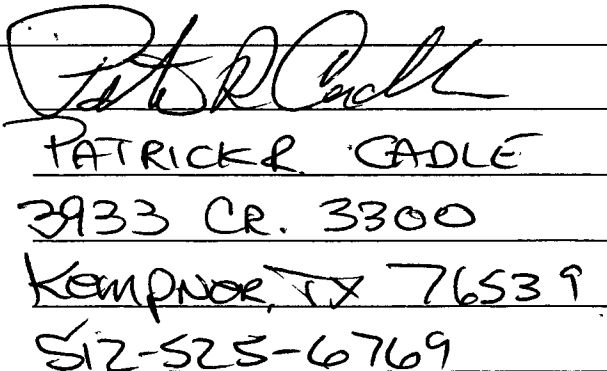 Patrick R Cadle
PATRICK R. CADLE
3933 CR. 3300
Kempner, TX 76539
512-525-6769